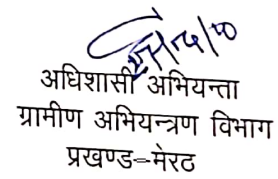 अधिशासी अभियन्ता
ग्रामीण अभियन्त्रण विभाग
प्रखण्ड-मेरठ